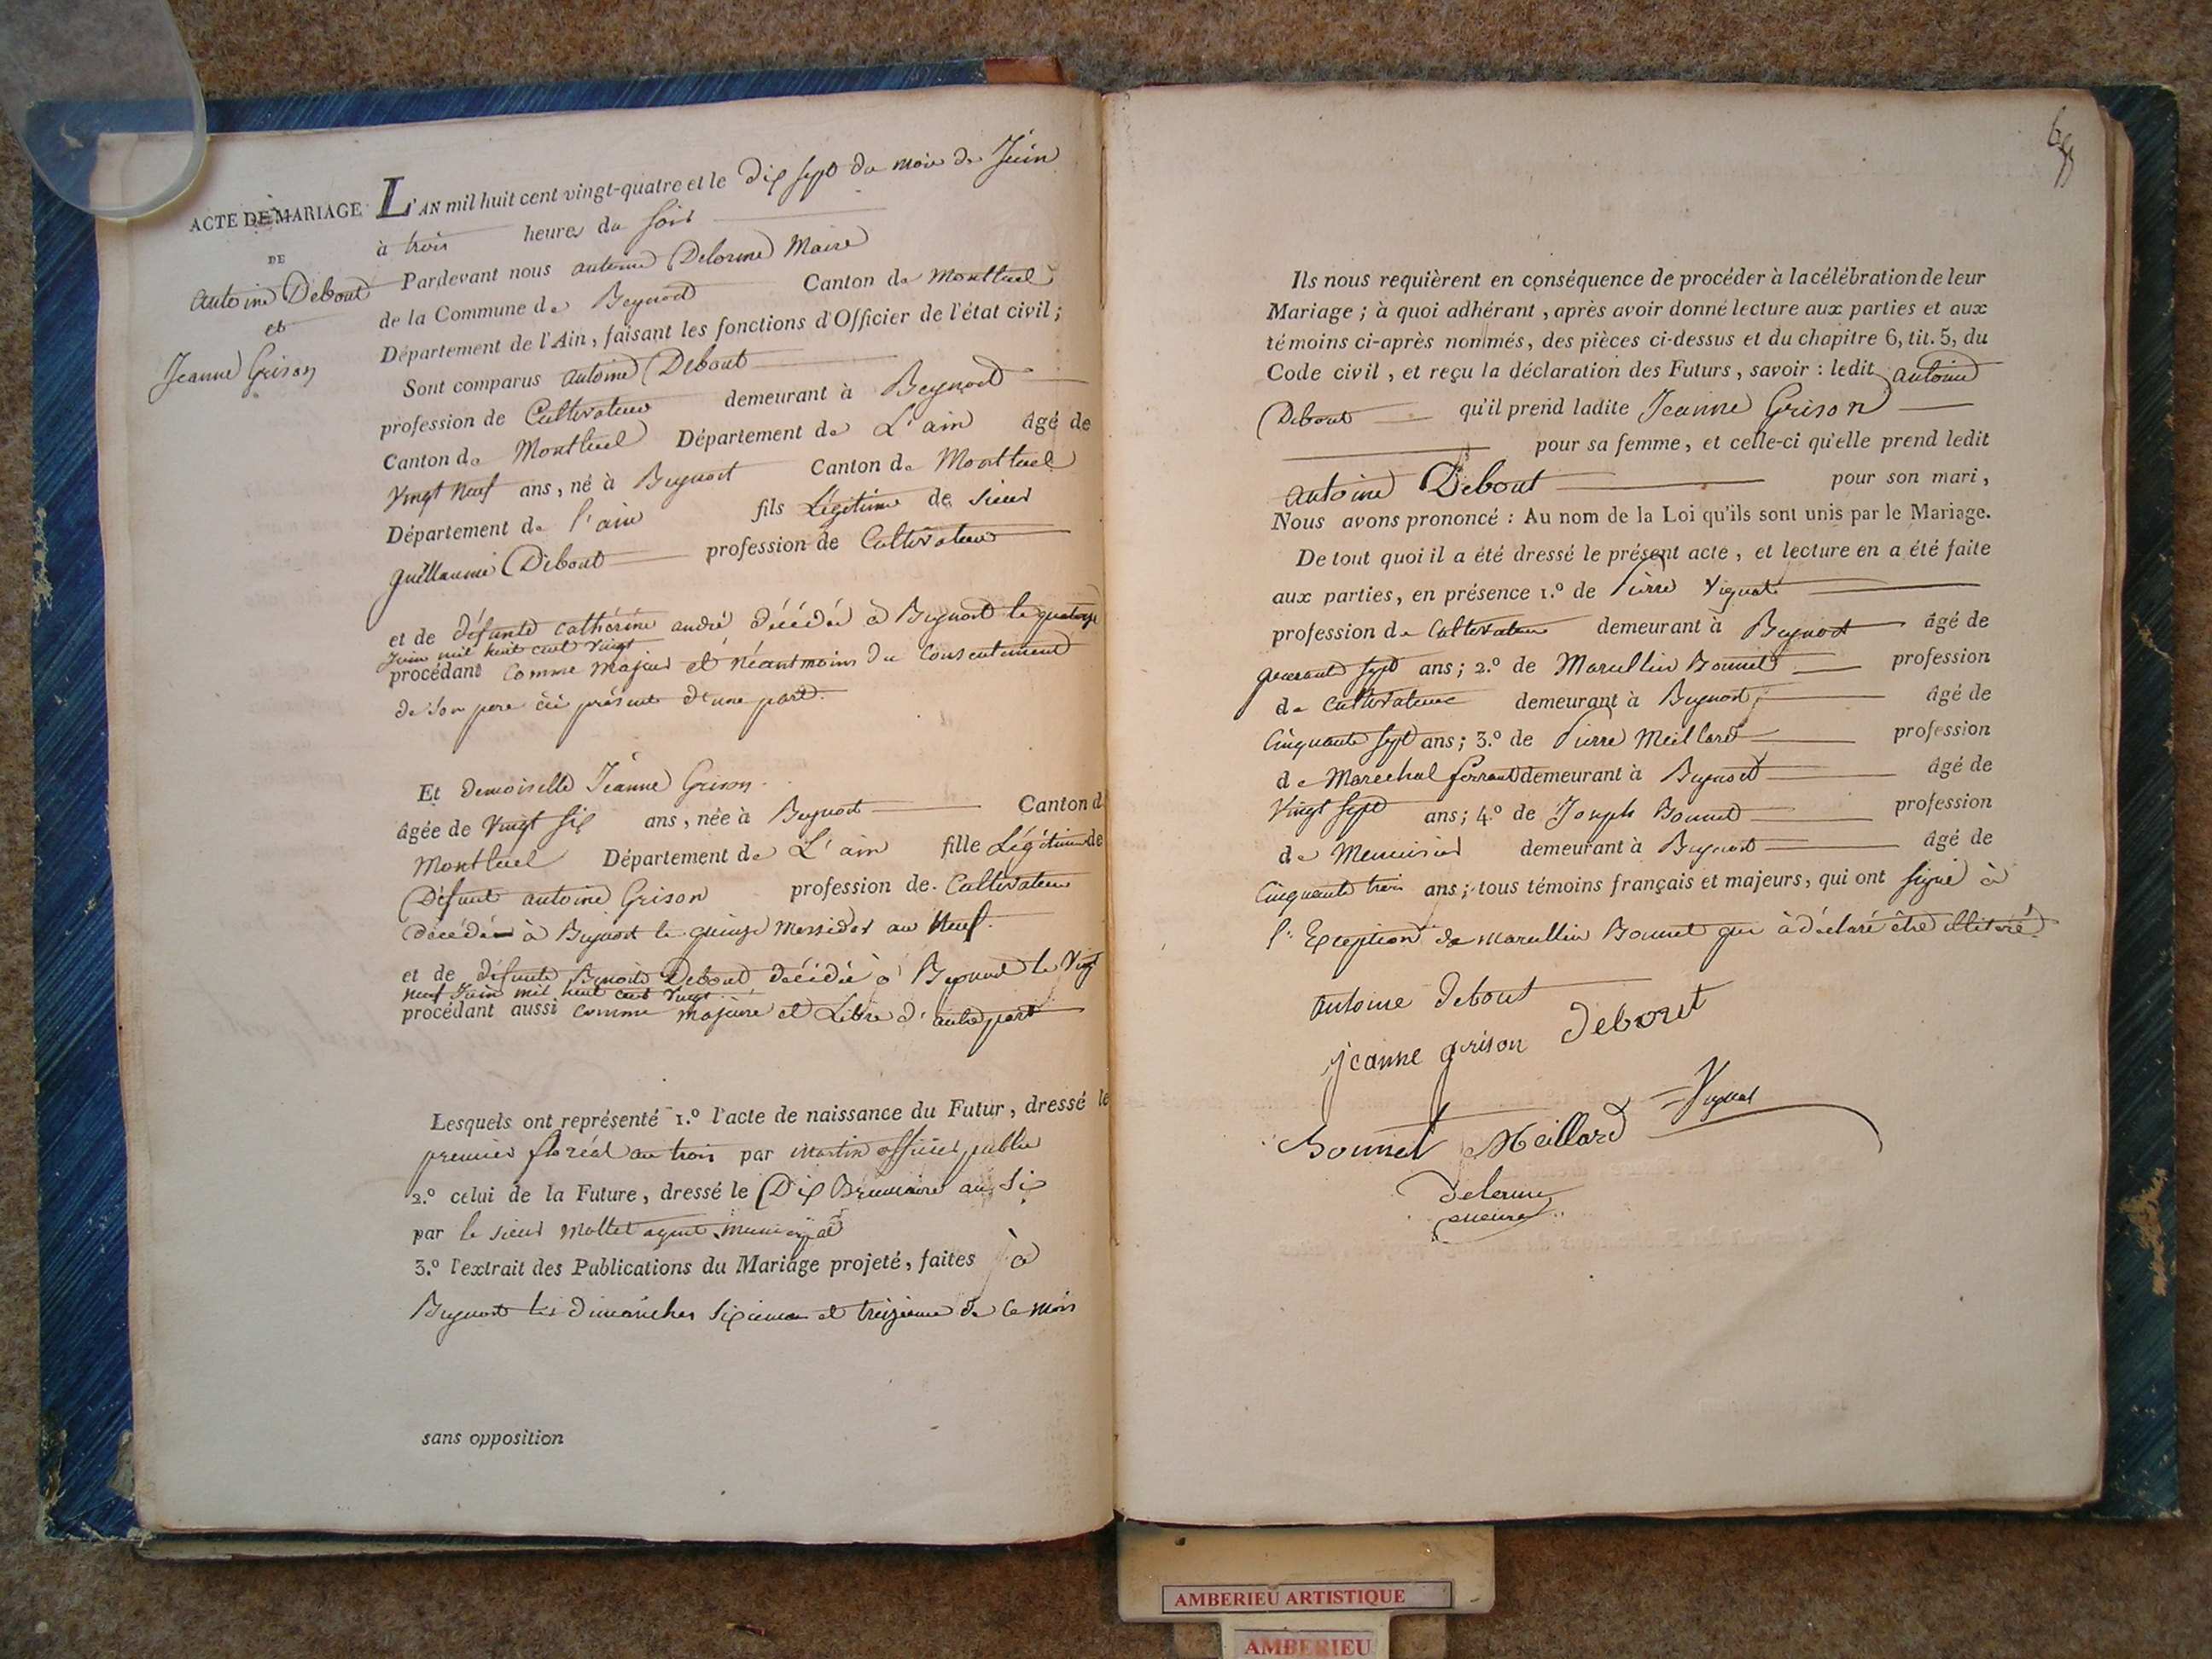 ACTE DE MARIAGE
DE
antoine Debout
et
Jeanne Grison
L'AN mil huit cent vingt-quatre et le dix sept du mois de Juin
à trois heures du soir
Pardevant nous antoine Delorme Maire
de la Commune de Beynost Canton de Montluel
Département de l'Ain, faisant les fonctions d'Officier de l'état civil;
Sont comparus antoine Debout
profession de Cultivateur demeurant à Beynost
Canton de Montluel Département de L'ain âgé de
Vingt neuf ans, né à Beynost Canton de Montluel
Département de l'ain fils Légitime de sieur
guillaume Debout profession de Cultivateur
et de défunte catherine andré décédée à Beynost le quatorze
Juin mil huit cent vingt
procédant comme majeur et néantmoins du consentement
de son pere ici présent d'une part.
Et demoiselle Jeanne Grison
âgée de Vingt six ans, née à Beynost Canton d
Montluel Département de L'ain fille Légitime de
Défunt antoine Grison profession de Cultivateur
décédé à Beynost le quinze Messidor an Neuf.
et de défunte Benoite Debout décédée à Beynost le Vingt
neuf Juin mil huit cent vingt
procédant aussi comme majeure et Libre d'autre part
Lesquels ont représenté 1.º l'acte de naissance du Futur, dressé le
premier floréal an trois par Martin officier public
2.º celui de la Future, dressé le Dix Brumaire an Six
par le sieur Mollet agent municipal
3.º l'extrait des Publications du Mariage projeté, faites à
Beynost les dimanches sixieme et treizieme de ce mois
sans opposition
Ils nous requièrent en conséquence de procéder à la célébration de leur
Mariage; à quoi adhérant, après avoir donné lecture aux parties et aux
témoins ci-après nommés, des pièces ci-dessus et du chapitre 6, tit. 5, du
Code civil, et reçu la déclaration des Futurs, savoir: ledit antoine
Debout qu'il prend ladite Jeanne Grison
pour sa femme, et celle-ci qu'elle prend ledit
antoine Debout pour son mari,
Nous avons prononcé: Au nom de la Loi qu'ils sont unis par le Mariage.
De tout quoi il a été dressé le présent acte, et lecture en a été faite
aux parties, en présence 1.º de Pierre Vignat
profession de Cultivateur demeurant à Beynost âgé de
quarante sept ans; 2.º de Marcellin Bonnet profession
de cultivateur demeurant à Beynost, âgé de
Cinquante sept ans; 3.º de Pierre Meillard profession
de Marechal ferrant demeurant à Beynost âgé de
Vingt sept ans; 4.º de Joseph Bonnet profession
de Menuisier demeurant à Beynost âgé de
Cinquante trois ans; tous témoins français et majeurs, qui ont signé à
l'Exception de marcellin Bonnet qui à déclaré être illitéré
antoine debout
jeanne grison debout
Bonnet Meillard Vignat
delorme
maire
AMBERIEU ARTISTIQUE
AMBERIEU